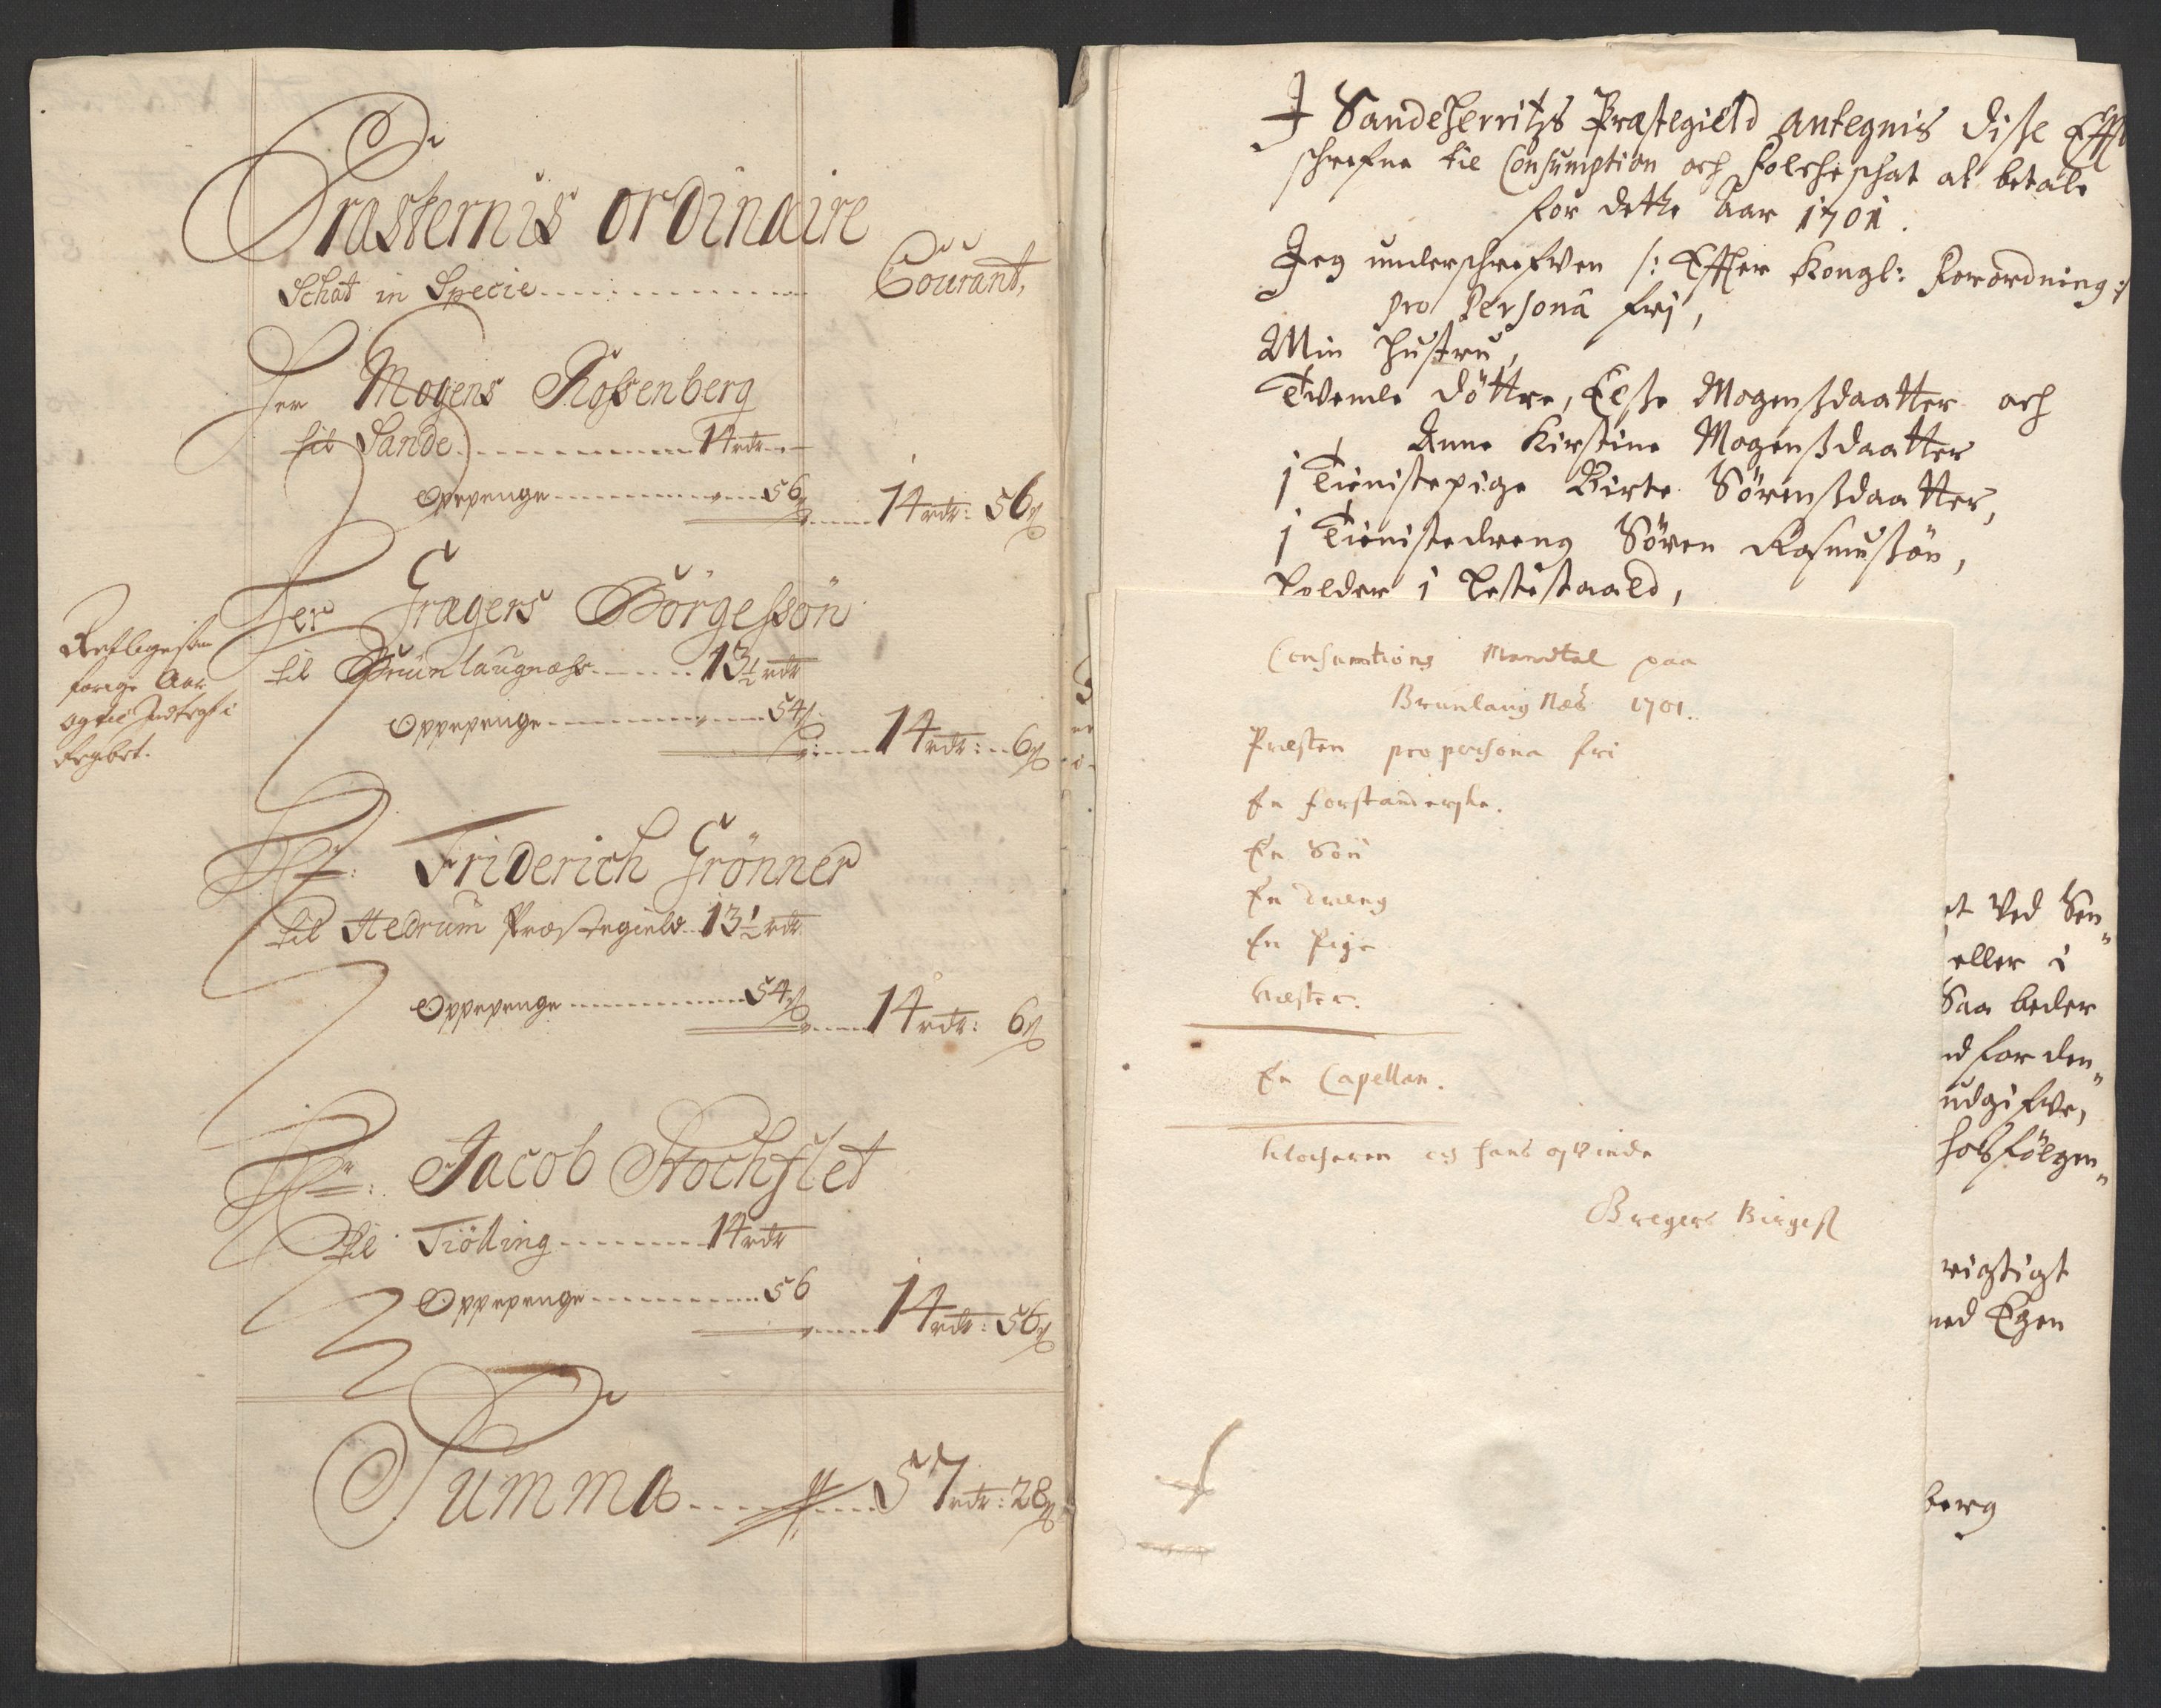 Præsternis ordinaire
Schat in Specie
Courant,
Her Mogens Rossenberg
til Sande 14 rdr
Oppepenge 56 14 rdr: 56 ß
Her Gregers Börgessön
til Brunlaugnæhs 13½ rdr
Oppepenge 54 ß 14 rdr: 6 ß
forige Aar
Hr: Friderich Grönner
til Hedrum Præstegield 13½ rdr
Oppepenge 54 ß 14 rdr: 6 ß
Hr: Jacob Stochflet
til Tiölling 14 rdr
Oppepenge 56 14 rdr: 56 ß
Summa 57 rdr: 28 ß
I Sandeherritzs Præstegield antegnis disse Effter
schrefne til Consumption och Folcheschat at betale
for dette Aar 1701.
Jeg underschrefven /: Effter Kongl: Forordning :/
pro Persona fri,
Min Hustru,
Tvende Döttre, Else Mogensdaatter och
Anne Kirstine Mogensdaatter
1 Tienistepige Birte Sörensdaatter,
1 Tienistedreng Sören Rasmussön,
holder i
Consumtions Mandtal paa
Brunlaug Næs 1701.
Præsten pro persona fri
En forstanderske.
En Sön
En dreng
En Pige
En Capellan.
Klocheren og hans qvinde
Gregers Birges
et ved Sen
eller i
Saa beder
d for den
udgifve,
hosfölgen
rigtigt
med Egen
berg